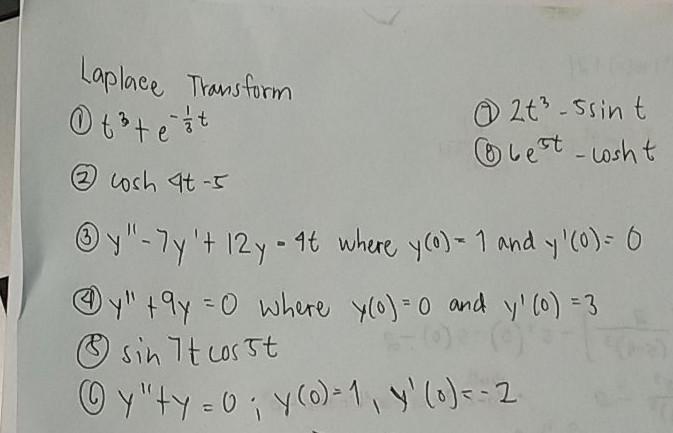 Laplace Transform
① t³ + e^{-⅓t}
② cosh 4t - 5
③ y'' - 7y' + 12y = 4t where y(0) = 1 and y'(0) = 0
④ y'' + 9y = 0 where y(0) = 0 and y'(0) = 3
⑤ sin 7t cos 5t
⑥ y'' + y = 0 ; y(0) = 1, y'(0) = -2
⑦ 2t³ - 5sin t
⑧ 6e^{5t} - cosh t